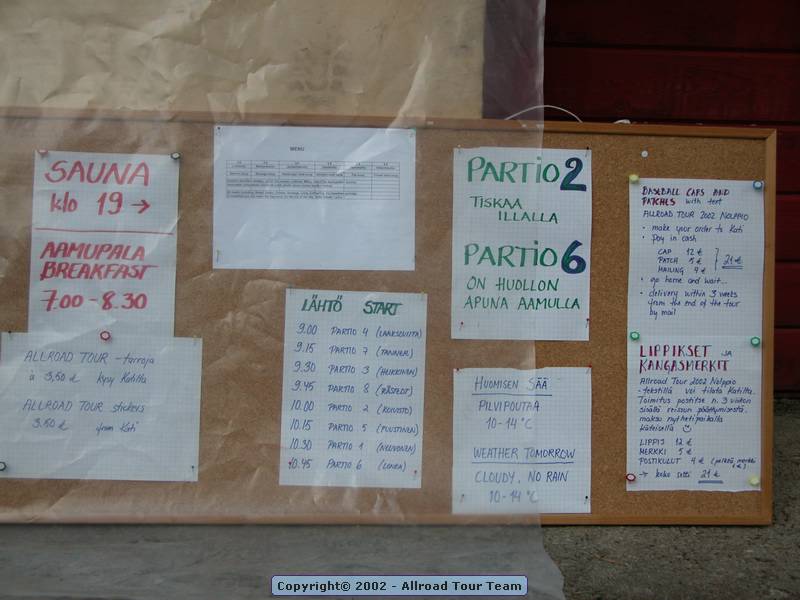 SAUNA
klo 19 →
AAMUPALA
BREAKFAST
7.00 - 8.30
ALLROAD TOUR -tarroja
à 3,50 € kysy Katilta
ALLROAD TOUR stickers
3.50 € from Kati
MENU
LÄHTÖ START
9.00 PARTIO 4 (LAAKSOVIITA)
9.15 PARTIO 7 (TANNER)
9.30 PARTIO 3 (HEIKKINEN)
9.45 PARTIO 8 (RÅSFELDT)
10.00 PARTIO 2 (KOIVISTO)
10.15 PARTIO 5 (PUSTINEN)
10.30 PARTIO 1 (NEUVONEN)
10.45 PARTIO 6 (LINNA)
PARTIO 2
TISKAA
ILLALLA
PARTIO 6
ON HUOLLON
APUNA AAMULLA
HUOMISEN SÄÄ
PILVIPOUTAA
10-14 °C
WEATHER TOMORROW
CLOUDY, NO RAIN
10-14 °C
BASEBALL CAPS AND
PATCHES with text
ALLROAD TOUR 2002 NOLPPIO
• make your order to Kati
• pay in cash
CAP 12 €
PATCH 5 € 21 €
MAILING 4 €
• go home and wait...
• delivery within 3 weeks
from the end of the tour
by mail
LIPPIKSET JA
KANGASMERKIT
Allroad Tour 2002 Nolppio
-tekstillä voi tilata Katilta.
Toimitus postitse n. 3 viikon
sisällä reissun päättymisestä,
maksu nyt heti paikalla
käteisellä
LIPPIS 12 €
MERKKI 5 €
POSTIKULUT 4 € (pelkkä merkki
1 €)
→ koko setti 21 €
Copyright© 2002 - Allroad Tour Team